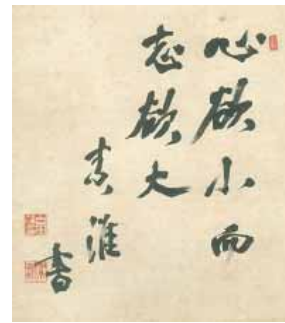 心欲小而
志欲大
淮
書